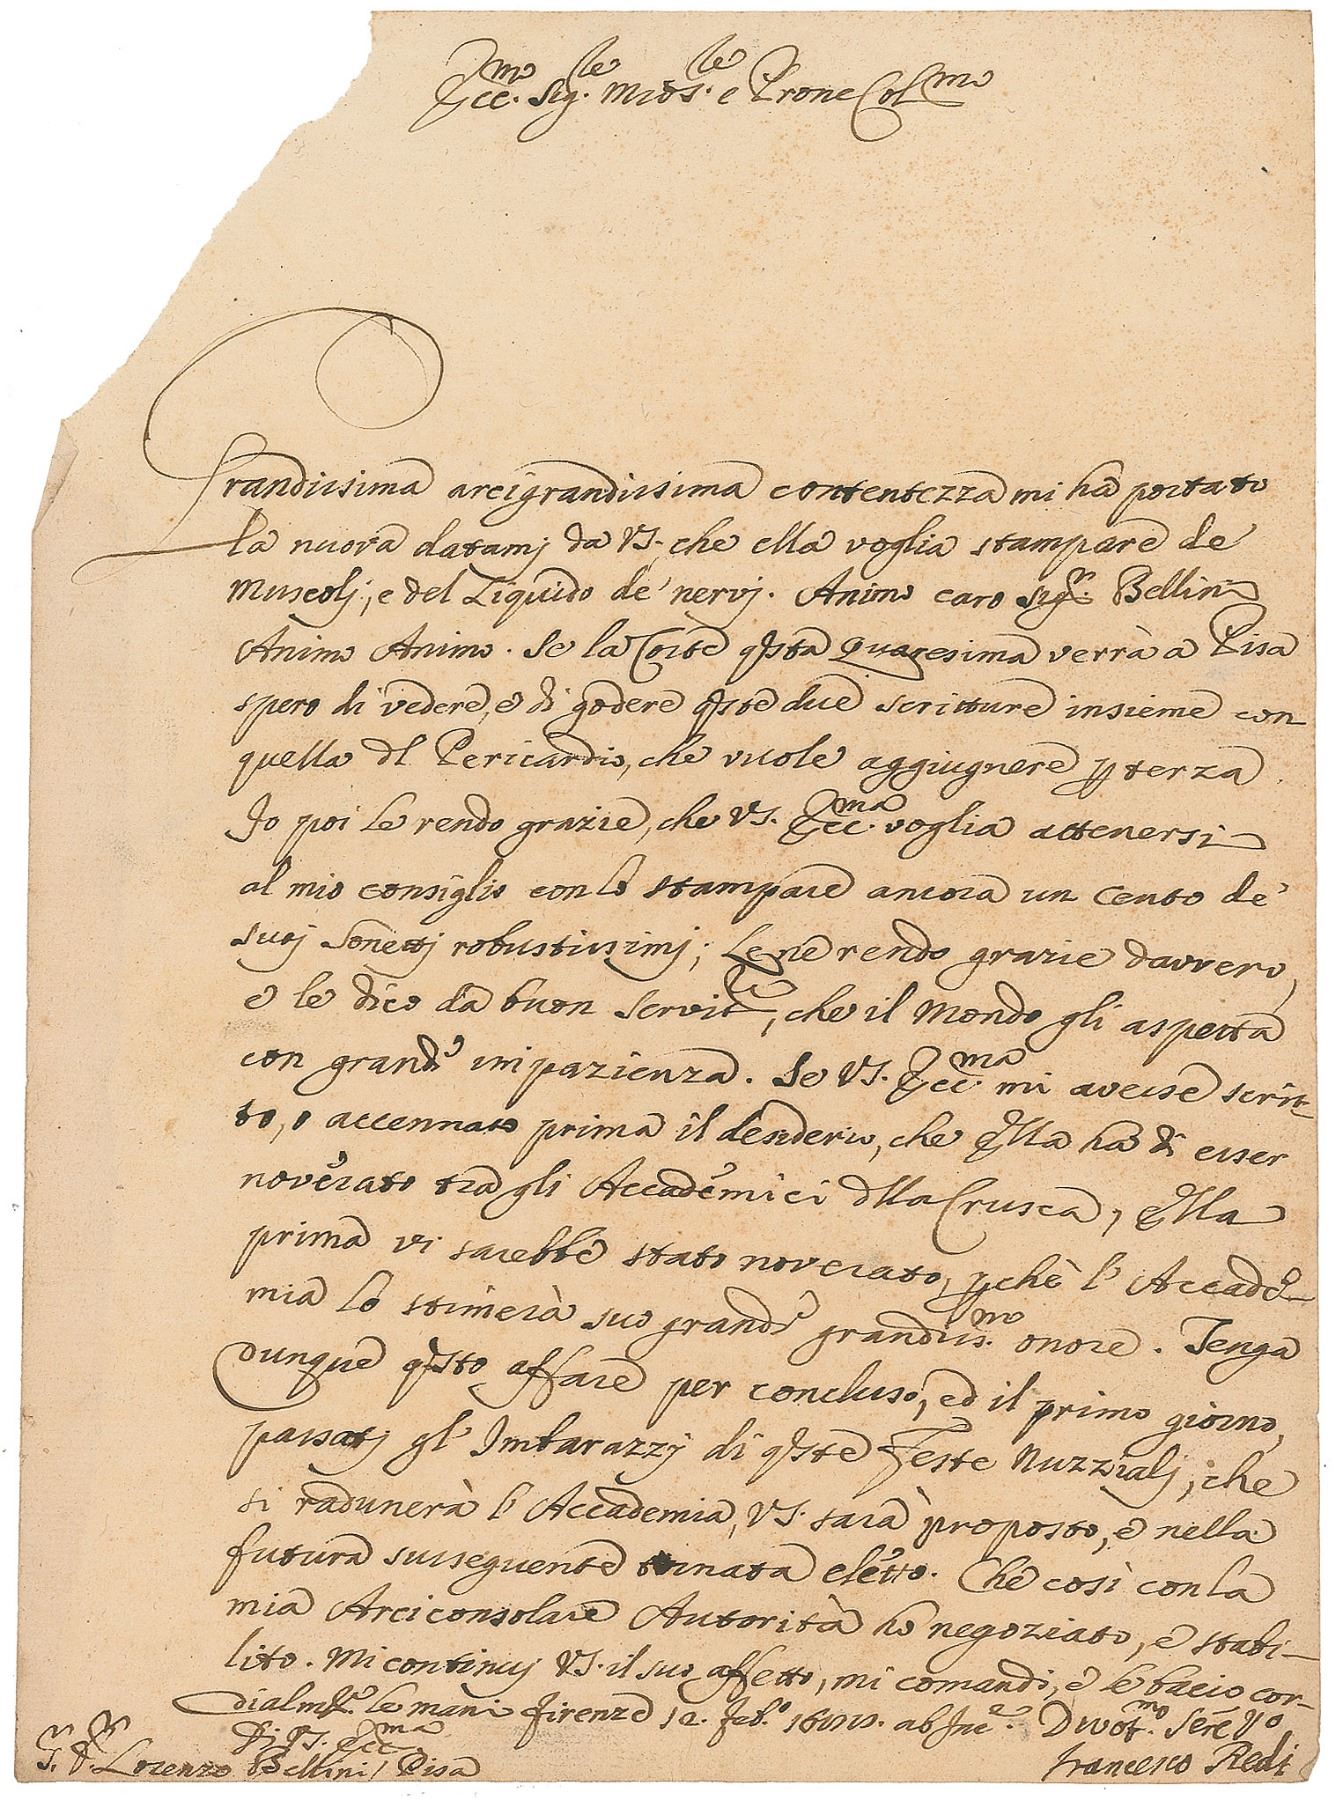 Ecc.mo Sig.re mio Sig.re e Prone Col.mo
Grandissima arcigrandissima contentezza mi ha portato
la nuova datami da VS. che ella voglia stampare de
Muscolj, e del Liquido de' nervj. Animo caro Sig.r Bellini
Animo Animo. Se la Corte qsta Quaresima verrà a Pisa
spero di vedere, e di godere qste due scritture insieme con
quella dl Pericardio, che vuole aggiugnere p terza.
Io poi le rendo grazie, che VS. Ecc.ma voglia attenersi
al mio consiglio con lo stampare ancora un Cento de'
suoj Sonettj robustissimj; Le ne rendo grazie davvero,
e le dico da buon servit.re, che il Mondo gli aspetta
con grande impazienza. Se VS. Ecc.ma mi avesse scrit-
to, o accennato prima il desiderio, che Ella ha di esser
noverato tra gli Accademici dlla Crusca, Ella
prima vi sarebbe stato noverato, pchè l' Accade-
mia lo stimerà suo grande grandiss.mo onore. Tenga
dunque qsto affare per concluso, ed il primo giorno,
passatj gl' Imbarazzj di qste Feste Nuzzialj, che
si radunerà l' Accademia, VS. sarà proposto, e nella
futura susseguente tornata eletto. Che così con la
mia Arciconsolare Autorità ho negoziato, e stabi-
lito. Mi continuj VS. il suo affetto, mi comandi, e le bacio cor-
dialm.te le mani Firenze 12. Feb.o ab Inc.e.
Di VS. Ecc.ma Divot.mo Sere Vo
S.r D.r Lorenzo Bellini / Pisa Francesco Redi